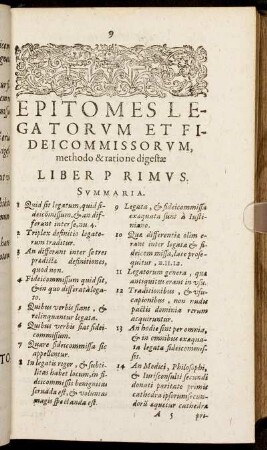 9
EPITOMES LE-
GATORVM ET FI-
DEICOMMISSORVM,
methodo & ratione digestæ
LIBER PRIMVS.
SVMMARIA.
1 Quid sit legatum, quid fi-
deicōmissum, & an dif-
ferant inter se, nu. 4.
2 Triplex definitio legato-
rum traditur.
3 An differant inter se tres
prædictæ definitiones,
quod non.
4 Fideicommissum quid sit,
& in quo differat à lega-
to.
5 Quibus verbis fiant, &
relinquantur legata.
6 Quibus verbis fiat fidei-
commissum.
7 Quare fideicommissa sic
appellentur.
8 In legatis rigor, & subti-
litas habet locum, in fi-
deicōmissis benignitas
seruāda est, & voluntas
magis spectanda est.
9 Legata, & fideicommissa
exæquata sunt à Iusti-
niano.
10 Quæ differentia olim e-
rant inter legata & fi-
deicommissa, late prose-
quitur, n. 11. 12.
11 Legatorum genera, quæ
antiquitus erant in vsu.
12 Traditionibus, & vsu-
capionibus, non nudis
pactis dominia rerum
acquiruntur.
13 An hodie sint per omnia,
& in omnibus exæqua-
ta legata fideicommis-
sis.
14 An Medici, Philosophi,
& Iurisconsulti secundi
donati paritate primæ
cathedræ ipsorum secun-
darij aquitur cathedra
A 5 pri-